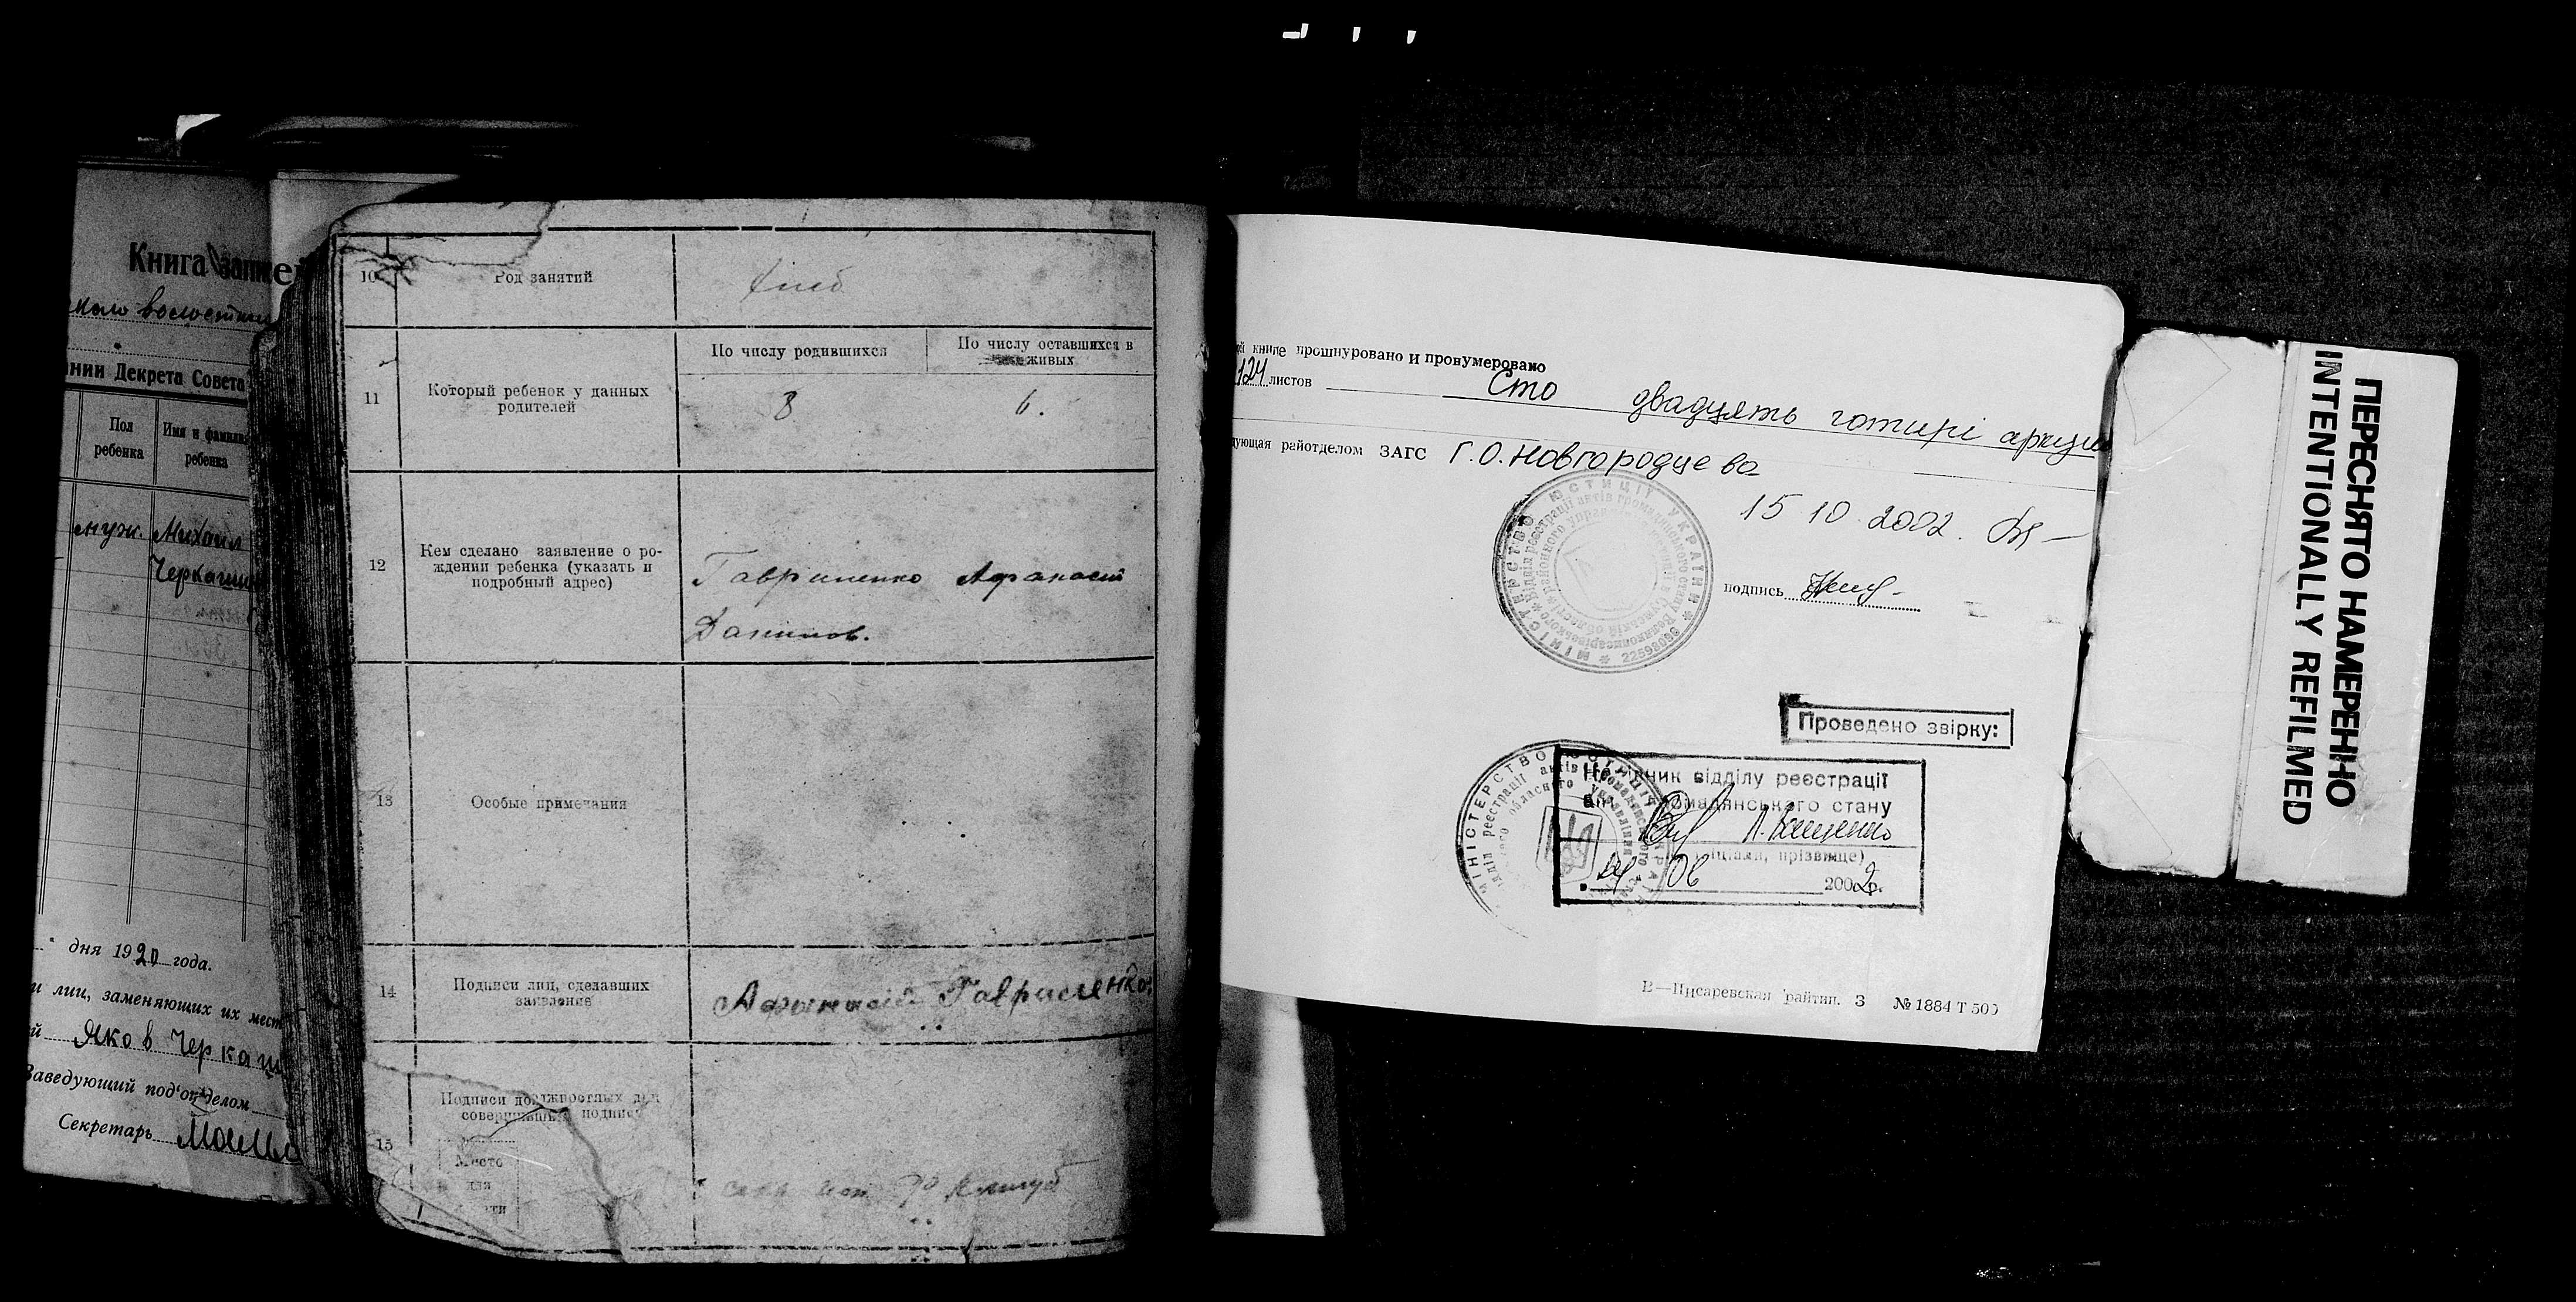 Книга записей
волостн
нии Декрета Совета
Пол ребенка
Имя и фамилия ребенка
муж. Михаил
Черкашин
дня 1920 года.
и лиц, заменяющих их мест
й Яков Черкаш
Заведующий под'отделом
Секретарь
10
Род занятий
11
Который ребенок у данных
родителей
По числу родившихся
По числу оставшихся в
живых
8
6.
12
Кем сделано заявление о ро-
ждении ребенка (указать и
подробный адрес)
Гавриленко Афанасий
Данилов.
13
Особые примечания
14
Подписи лиц, сделавших
заявление
Афанасий Гавриленко
15
Подписи должностных лиц
совершивших подпись
Место
для
ой книге прошнуровано и пронумеровано
124 листов Сто двадцять чотирі аркуші
дующая райотделом ЗАГС Г.О. Новгородцева
15 10 2002.
подпись
МІНІСТЕРСТВО ЮСТИЦІЇ УКРАЇНИ
22598096
Проведено звірку:
МІНІСТЕРСТВО ЮСТИЦІЇ УКРАЇНИ
Начальник відділу реєстрації
актів громадянського стану
(ініціали, прізвище)
06 2002р.
В—Писаревская райтип. З № 1884 Т 500
ПЕРЕСНЯТО НАМЕРЕННО
INTENTIONALLY REFILMED